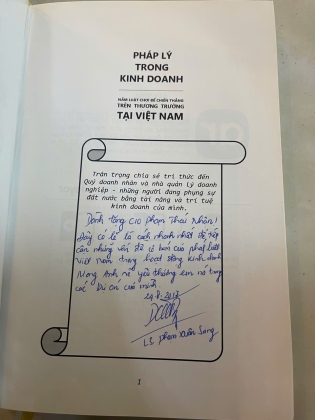 PHÁP LÝ
TRONG
KINH DOANH
NẮM LUẬT CHƠI ĐỂ CHIẾN THẮNG
TRÊN THƯƠNG TRƯỜNG
TẠI VIỆT NAM
Trân trọng chia sẻ tri thức đến
Quý doanh nhân và nhà quản lý doanh
nghiệp - những người đang phụng sự
đất nước bằng tài năng và trí tuệ
kinh doanh của mình.
Dành tặng CEO Phạm Thái Nhân!
Đây có lẽ là cách nhanh nhất để tiếp
cận những vấn đề cơ bản của pháp luật
Việt Nam trong hoạt động kinh doanh
Mong Anh sẽ yêu thương em nó trong
các Dự án của mình
LS. Phạm Xuân Sang
1